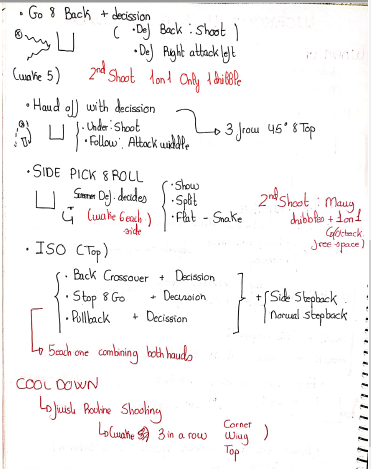 • Go & Back + decission
( • Def Back : Shoot )
• Def Right attack left
(make 5) 2nd Shoot 1 on 1 Only 1 dribble
• Hand off with decission
• Under: Shoot
• Follow: Attack middle
↳ 3 from 45° & Top
• SIDE PICK & ROLL
Def. decides
(make 6 each side)
• Show
• Split
• Flat - Snake
2nd Shoot : Many
dribbles + 1 on 1
(attack
free space)
• ISO (Top)
• Back Crossover + Decission
• Stop & Go + Decission
• Pullback + Decission
+ Side Stepback
normal Stepback
↳ 5 each one combining both hands
COOL DOWN
↳ finish Routine Shooting
↳ (make 3 in a row Corner
Wing
Top )